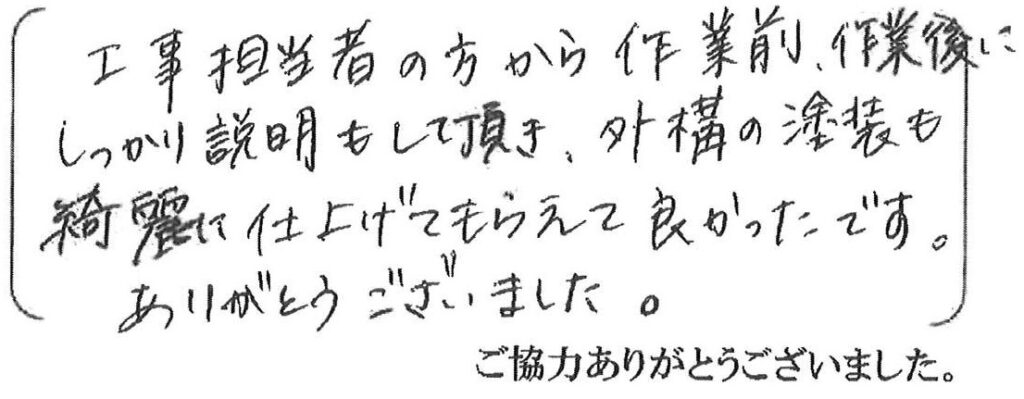 工事担当者の方から作業前、作業後に
しっかり説明もして頂き、外構の塗装も
綺麗に仕上げてもらえて良かったです。
ありがとうございました。
ご協力ありがとうございました。